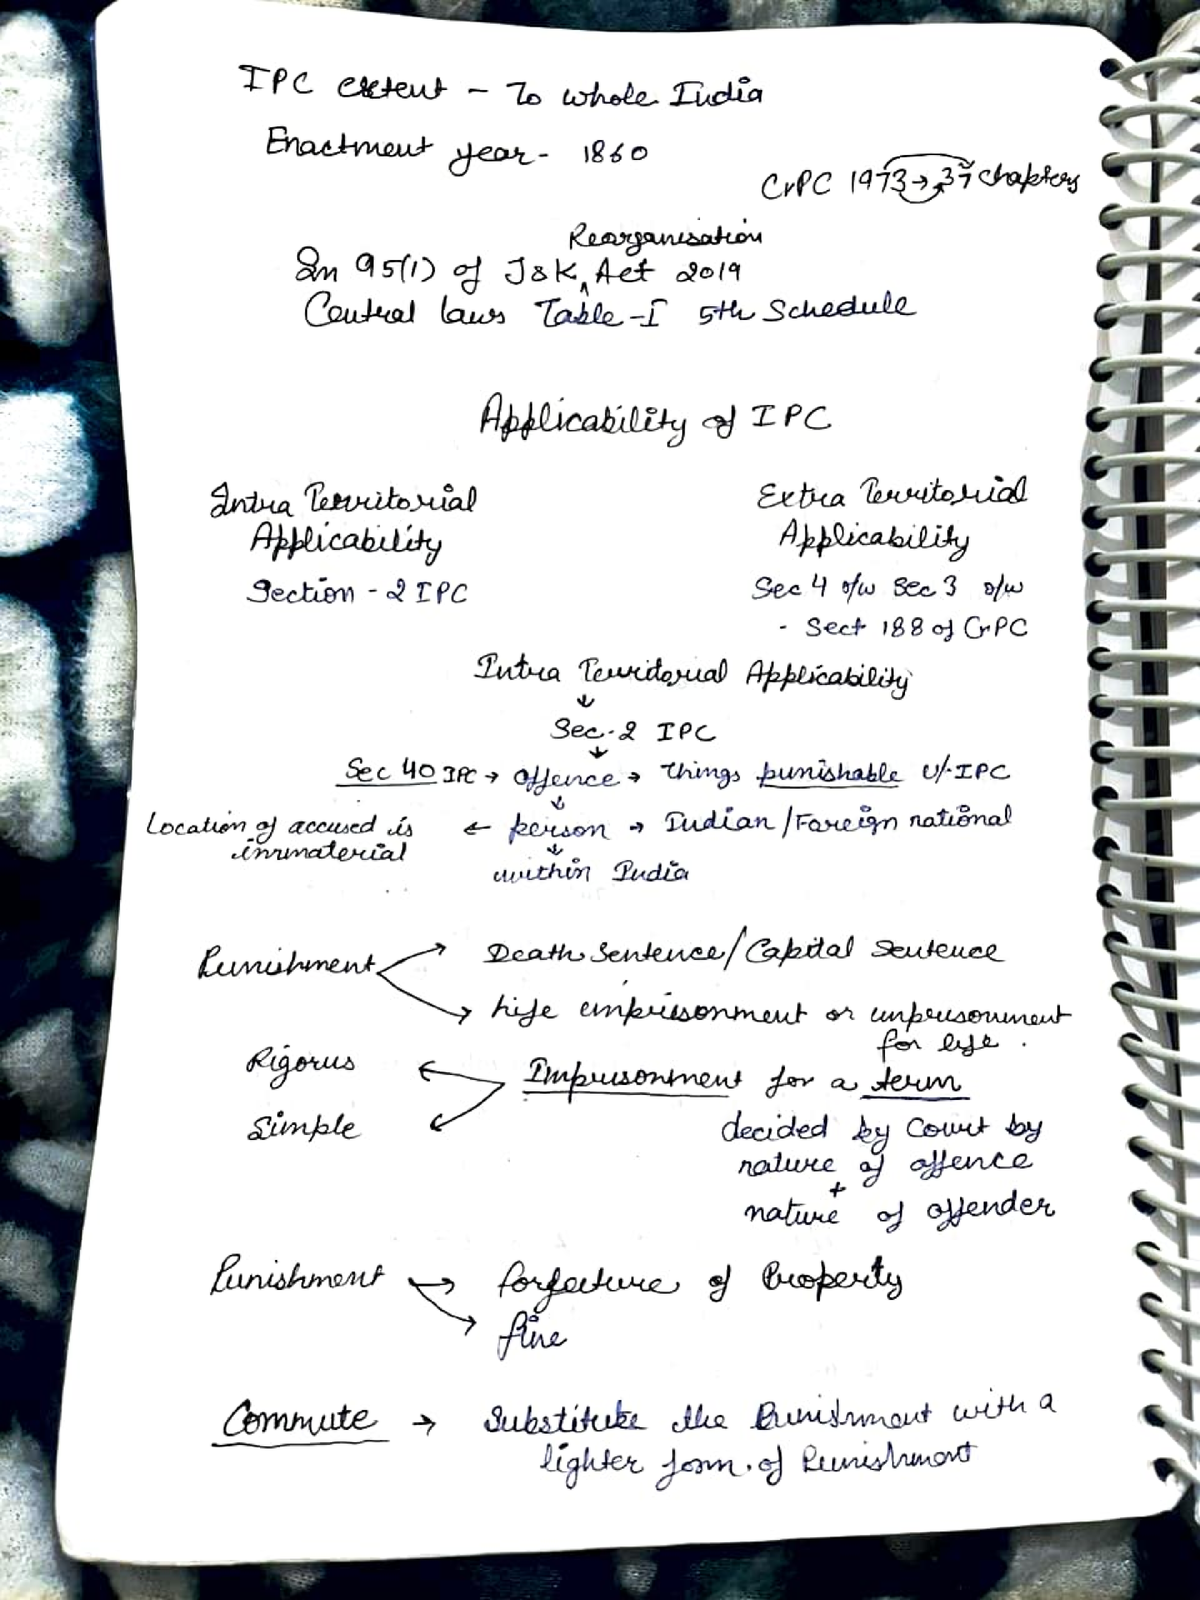 IPC extent - To whole India
Enactment year - 1860
CrPC 1973 → 37 chapters
Reorganisation
In 95(1) of J&K ^ Act 2019
Central laws Table-I 5th Schedule
Applicability of IPC
Intra Territorial
Applicability
Section - 2 IPC
Extra Territorial
Applicability
Sec 4 r/w Sec 3 r/w
- Sect 188 of CrPC
Intra Territorial Applicability
↓
Sec-2 IPC
↓
Sec 40 IPC → Offence → things punishable u/- IPC
↓
Location of accused is ← person → Indian/Foreign national
inmmaterial
↓
within India
Punishment → Death Sentence/Capital Sentence
→ Life imprisonment or imprisonment
for life.
Rigorus ← Imprisonment for a term
Simple ←
decided by Court by
nature of offence
+
nature of offender
Punishment → forfecture of Property
→ fine
Commute → Substitute the Punishment with a
lighter form of Punishment